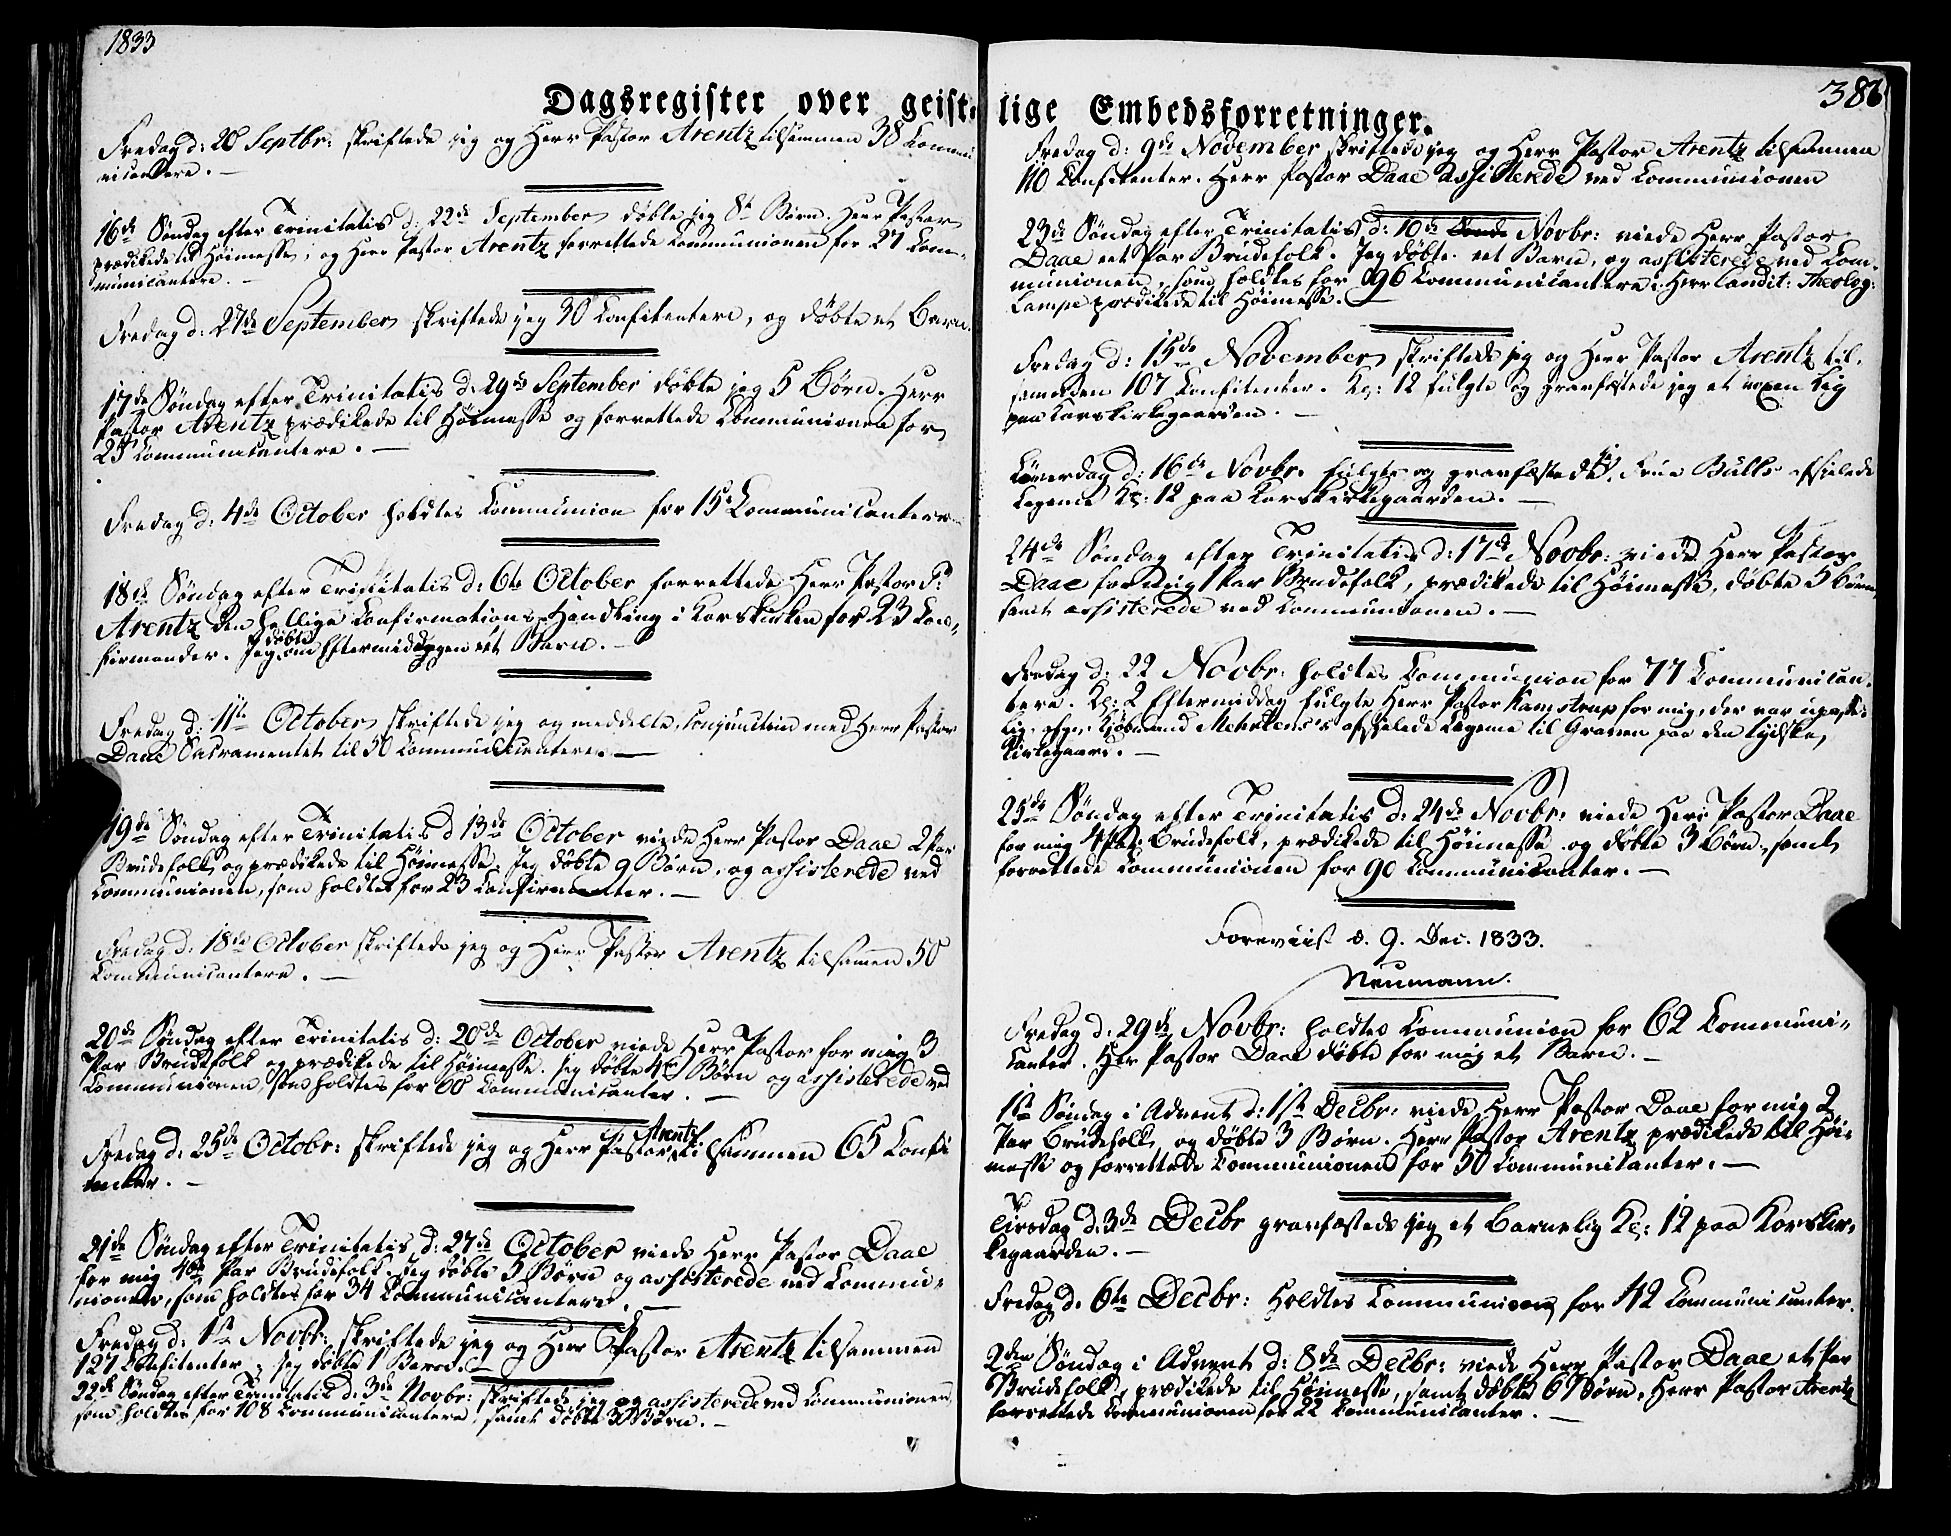 1833
Dagsregister over geist-
Fredag d: 20 Septbr: skriftede jeg og Herr Pastor Arentz tilsammen 38 Commu
nicantere. —
16de Søndag efter Trinitatis d: 22de September døbte jeg 8te Børn. Herr Pastor
prædikede til Høimesse, og Herr Pastor Arentz forrettede Communionen for 27 Com-
municantere. —
Fredag d: 27de September skriftede jeg 30 Confitentere, og døbte et Barn.
17de Søndag efter Trinitatis d: 29de September døbte jeg 5 Børn. Herr
Pastor Arentz prædikede til Høimesse og forrettede Communionen for
25 Communicantere. —
Fredag d: 4de October holdtes Communion for 15 Communicantere
18de Søndag efter Trinitatis d: 6te October forrettede Herr Pastor
Arentz den hellige Confirmations Handling i Korskirken for 23 Con-
firmander. Jeg døbte om Eftermiddagen eet Barn. —
Fredag d: 11te October skriftede jeg og meddelte, conjunctim med Herr Pastor
Daae Sacramentet til 50 Communicantere. —
19de Søndag efter Trinitatis d 13de October viede Herr Pastor Daae 2 Par
Brudefolk, og prædikede til Høimesse. Jeg døbte 9 Børn, og assisterede ved
Communionen, som holdtes for 23 —
Fredag d: 18de October skriftede jeg og Herr Pastor Arentz tilsamen 50
Communicantere. —
20de Søndag efter Trinitatis d: 20de October viede Herr Pastor for mig 3
Par Brudefolk og prædikede til Høimesse. Jeg døbte 4re Børn og assisterede ved
Communionen, som holdtes for 60 Communicanter. —
Fredag d: 25de Octobr: skriftede jeg og Herr Pastor Arentz tilsammen 65 Confi
tenter. —
21de Søndag efter Trinitatis, d: 27de October viede Herr Pastor Daae
for mig 4re Par Brudefolk. Jeg døbte 5 Børn og assisterede ved Commu-
nionen, som holdtes for 34 Communicantere. —
Fredag d: 1ste Novbr: skriftede jeg og Herr Pastor Arentz tilsammen
127 Confitenter, jeg døbte 1 Barn. —
22de Søndag efter Trinitatis d: 3de Novbr: skriftede jeg og assisterede ved Communionen
som holdtes for 108 Communicantere, samt døbte 3 Børn. —
386
lige Embedsforretninger.
Fredag d: 9de November skriftede jeg og Herr Pastor Arentz tilsammen
110 Confitenter. Herr Pastor Daae assisterede ved Communionen
23de Søndag efter Trinitatis d: 10de Novbr: viede Herr Pastor
Daae eet Par Brudefolk. Jeg døbte eet Barn, og assisterede ved Com-
munionen, som holdtes for 96 Communicantere. Herr Candit: Theolog:
Lampe prædikede til Høimesse. —
Fredag d: 15de November skriftede jeg og Herr Pastor Arentz til-
sammen 107 Confitenter. Kl: 12 fulgte og gravfæstede jeg et voxen Liig
paa Korskirkegaarden. —
Løverdag d: 16de Novbr. fulgte og gravfæstede jeg Frue Bulls afsjelede
Legeme Kl: 12 paa Korskirkegaarden. —
24de Søndag efter Trinitatis d: 17de Novbr: viede Herr Pastor
Daae for mig 1 Par Brudefolk, prædikede til Høimesse, døbte 5 Børn
samt assisterede ved Communionen. —
Fredag d: 22 Novbr: holdtes Communion for 77 Communican-
tere. Kl: 2 Eftermiddag fulgte Herr Pastor Kamstrup for mig, der var upasse-
lig, Kjøbmand Mehrtens's afsjelede Legeme til Graven paa den tydske
Kirkegaard. —
25de Søndag efter Trinitatis d: 24de Novbr: viede Herr Pastor Daae
for mig 4 Par Brudefolk, prædikede til Høimesse og døbte 3 Børn, samt
forrettede Communionen for 90 Communicanter. —
Foreviist d. 9. Dec. 1833.
Neumann.
Fredag d: 29de Novbr: holdtes Communion for 62 Communi-
canter. Herr Pastor Daae døbte for mig et Barn. —
1ste Søndag i Advent d: 1ste Decbr: viede Herr Pastor Daae for mig 2
Par Brudefolk, og døbte 3 Børn. Herr Pastor Arentz prædikede til Høi-
messe og forrettede Communionen for 50 Communicanter. —
Tirsdag d: 3de Decbr gravfæstede jeg et Barnelig Kl: 12 paa Korskir-
kegaarden. —
Fredag d. 6te Decbr: Holdtes Communion for 42 Communicanter.
2den Søndag i Advent d: 8de Decbr: viede Herr Pastor Daae et Par
Brudefolk, prædikede til Høimesse, samt døbte 6 Børn. Herr Pastor Arentz
forrettede Communionen for 22 Communicanter. —